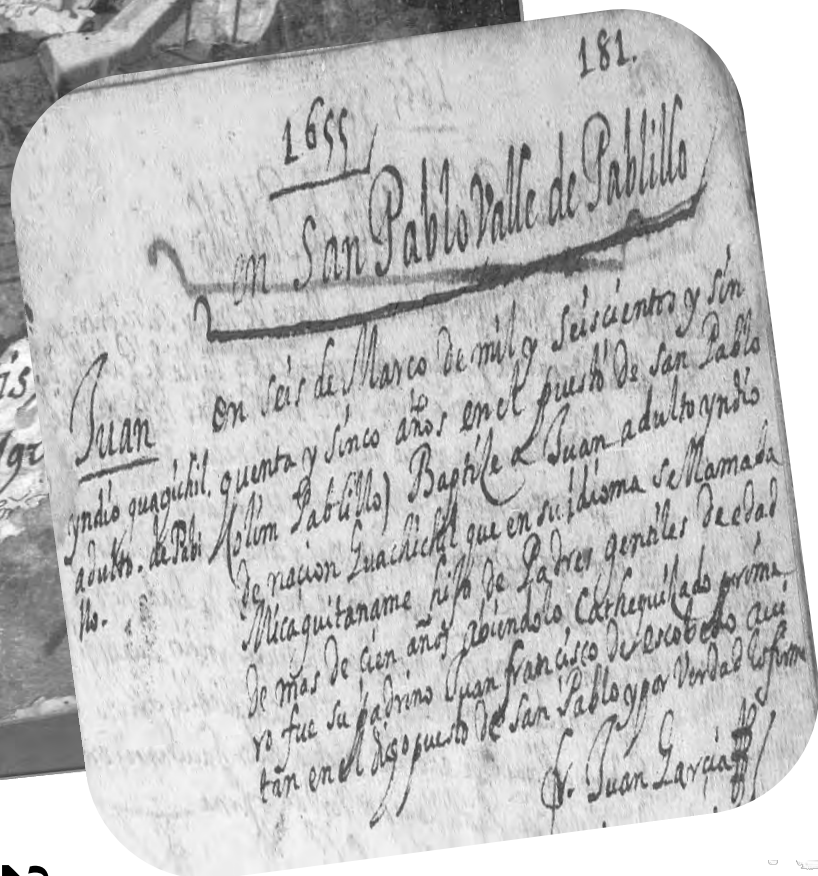 181.
1655
en San Pablo Valle de Pablillo
Juan
yndio guagichil.
adulto. de Pabli
llo.
en seis de Março de mil y seiscientos y sin
quenta y sinco años en el puesto de San Pablo
(olim Pablillo) Baptize a Juan adulto yndio
de naçion Guachichil que en su idioma se llamada
Micaguitaname hijo de Padres gentiles de edad
de mas de cien años abiendolo Cathequizado prime
ro fue su padrino Juan francisco de escobedo
tan en el puesto de San Pablo y por Verdad lo firme
fr. Juan Garcia